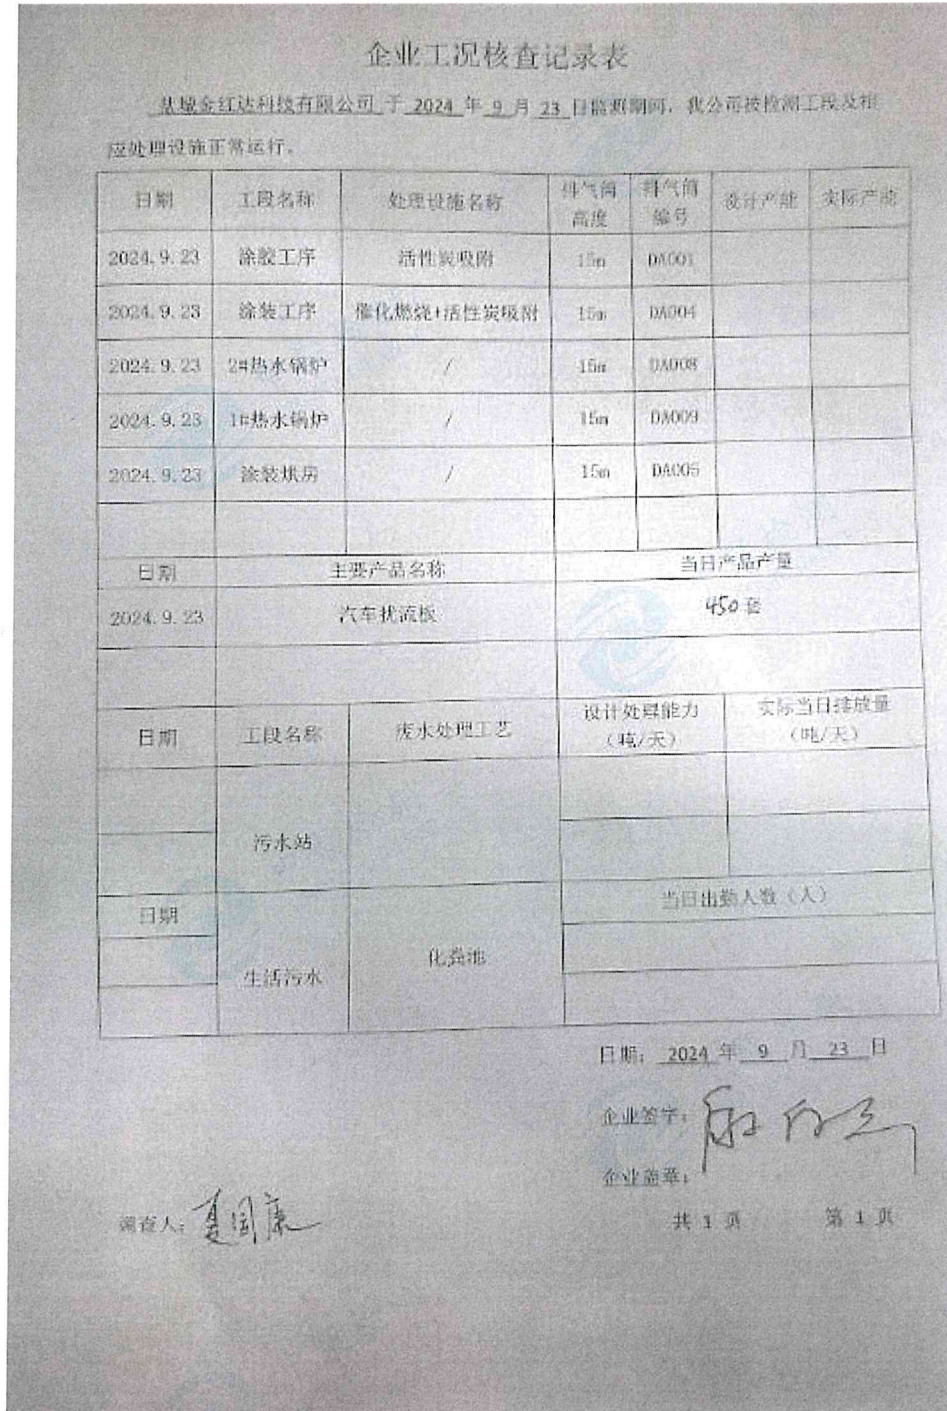 企业工况核查记录表
盐城金红达科技有限公司 于 2024 年 9 月 23 日监测期间，我公司被检测工段及相
应处理设施正常运行。
日期 工段名称 处理设施名称 排气筒高度 排气筒编号 设计产能 实际产能
2024.9.23 涂胶工序 活性炭吸附 15m DA001
2024.9.23 涂装工序 催化燃烧+活性炭吸附 15m DA004
2024.9.23 2#热水锅炉 / 15m DA008
2024.9.23 1#热水锅炉 / 15m DA009
2024.9.23 涂装烘房 / 15m DA005
日期 主要产品名称 当日产品产量
2024.9.23 汽车扰流板 450套
日期 工段名称 废水处理工艺 设计处理能力（吨/天） 实际当日排放量（吨/天）
污水站
日期 当日出勤人数（人）
生活污水 化粪池
日期： 2024 年 9 月 23 日
企业签字：
企业盖章：
调查人：夏国康
共 1 页 第 1 页